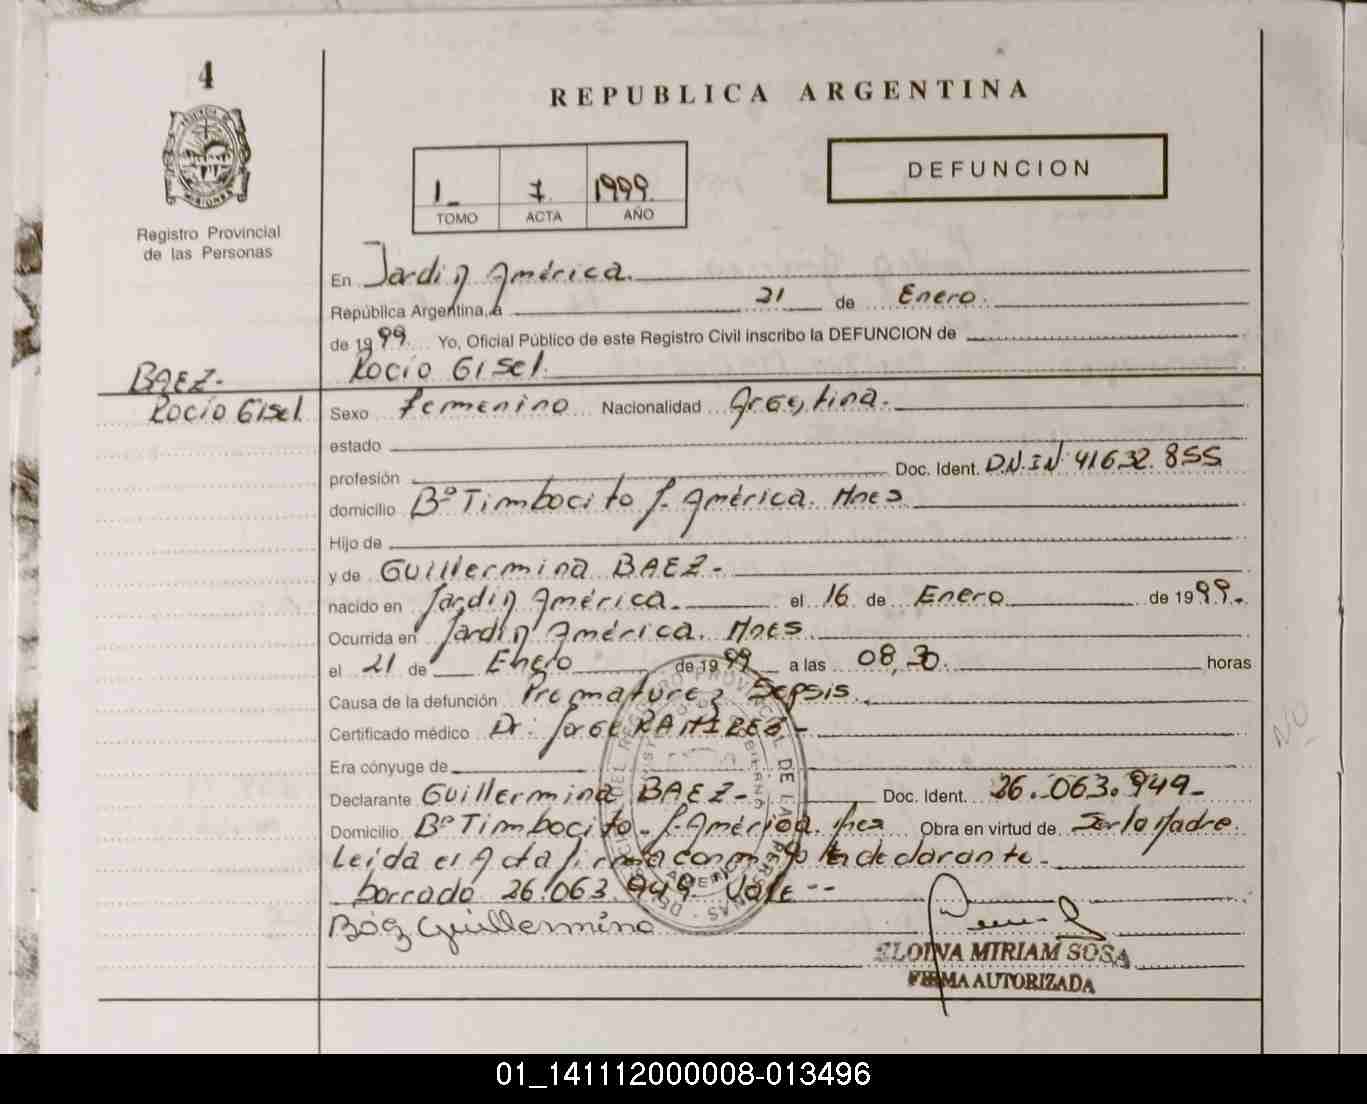 4
REPUBLICA ARGENTINA
DEFUNCION
1 7 1999
TOMO ACTA AÑO
Registro Provincial
de las Personas
En Jardín América.
República Argentina, a 21 de Enero.
de 1999. Yo, Oficial Público de este Registro Civil inscribo la DEFUNCION de
Rocio Gisel.
BAEZ-
Rocio Gisel
Sexo Femenino Nacionalidad Argentina.
estado
profesión Doc. Ident. D.N.I Nº 41632.855
domicilio Bº Timbocito J. América. Mnes
Hijo de
y de Guillermina BAEZ-
nacido en Jardín América. el 16 de Enero de 1999.
Ocurrida en Jardín América. Mnes
el 21 de Enero de 1999 a las 08,30. horas
Causa de la defunción Prematurez Sepsis.
Certificado médico Dr. Jorge RAMIREZ-
Era cónyuge de
Declarante Guillermina BAEZ- Doc. Ident. 26.063.949-
Domicilio Bº Timbocito- J. América. Mnes Obra en virtud de Ser la Madre.
Leida el Acta firma conmigo la declarante-
borrado 26.063.949 Vale--
Báez Guillermina
ELOINA MIRIAM SOSA
FIRMA AUTORIZADA
NO
01_141112000008-013496